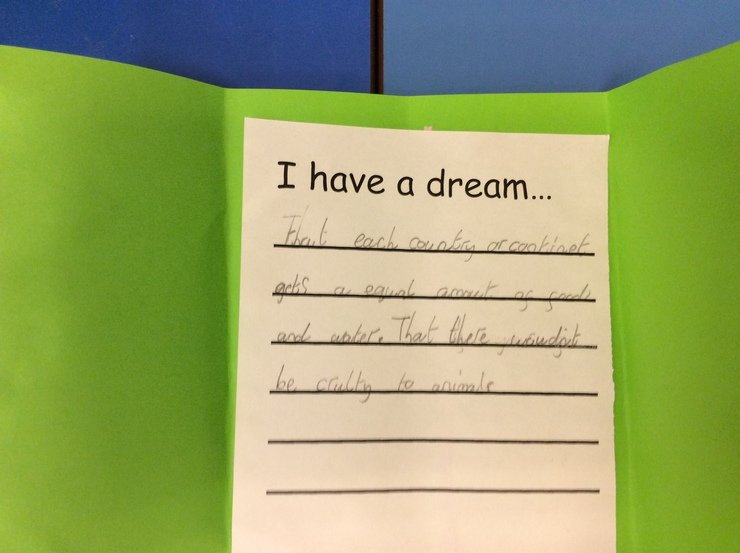 I have a dream...
That each country or continet
gets a equal amount of food
and water. That there woudnt
be crulty to animals